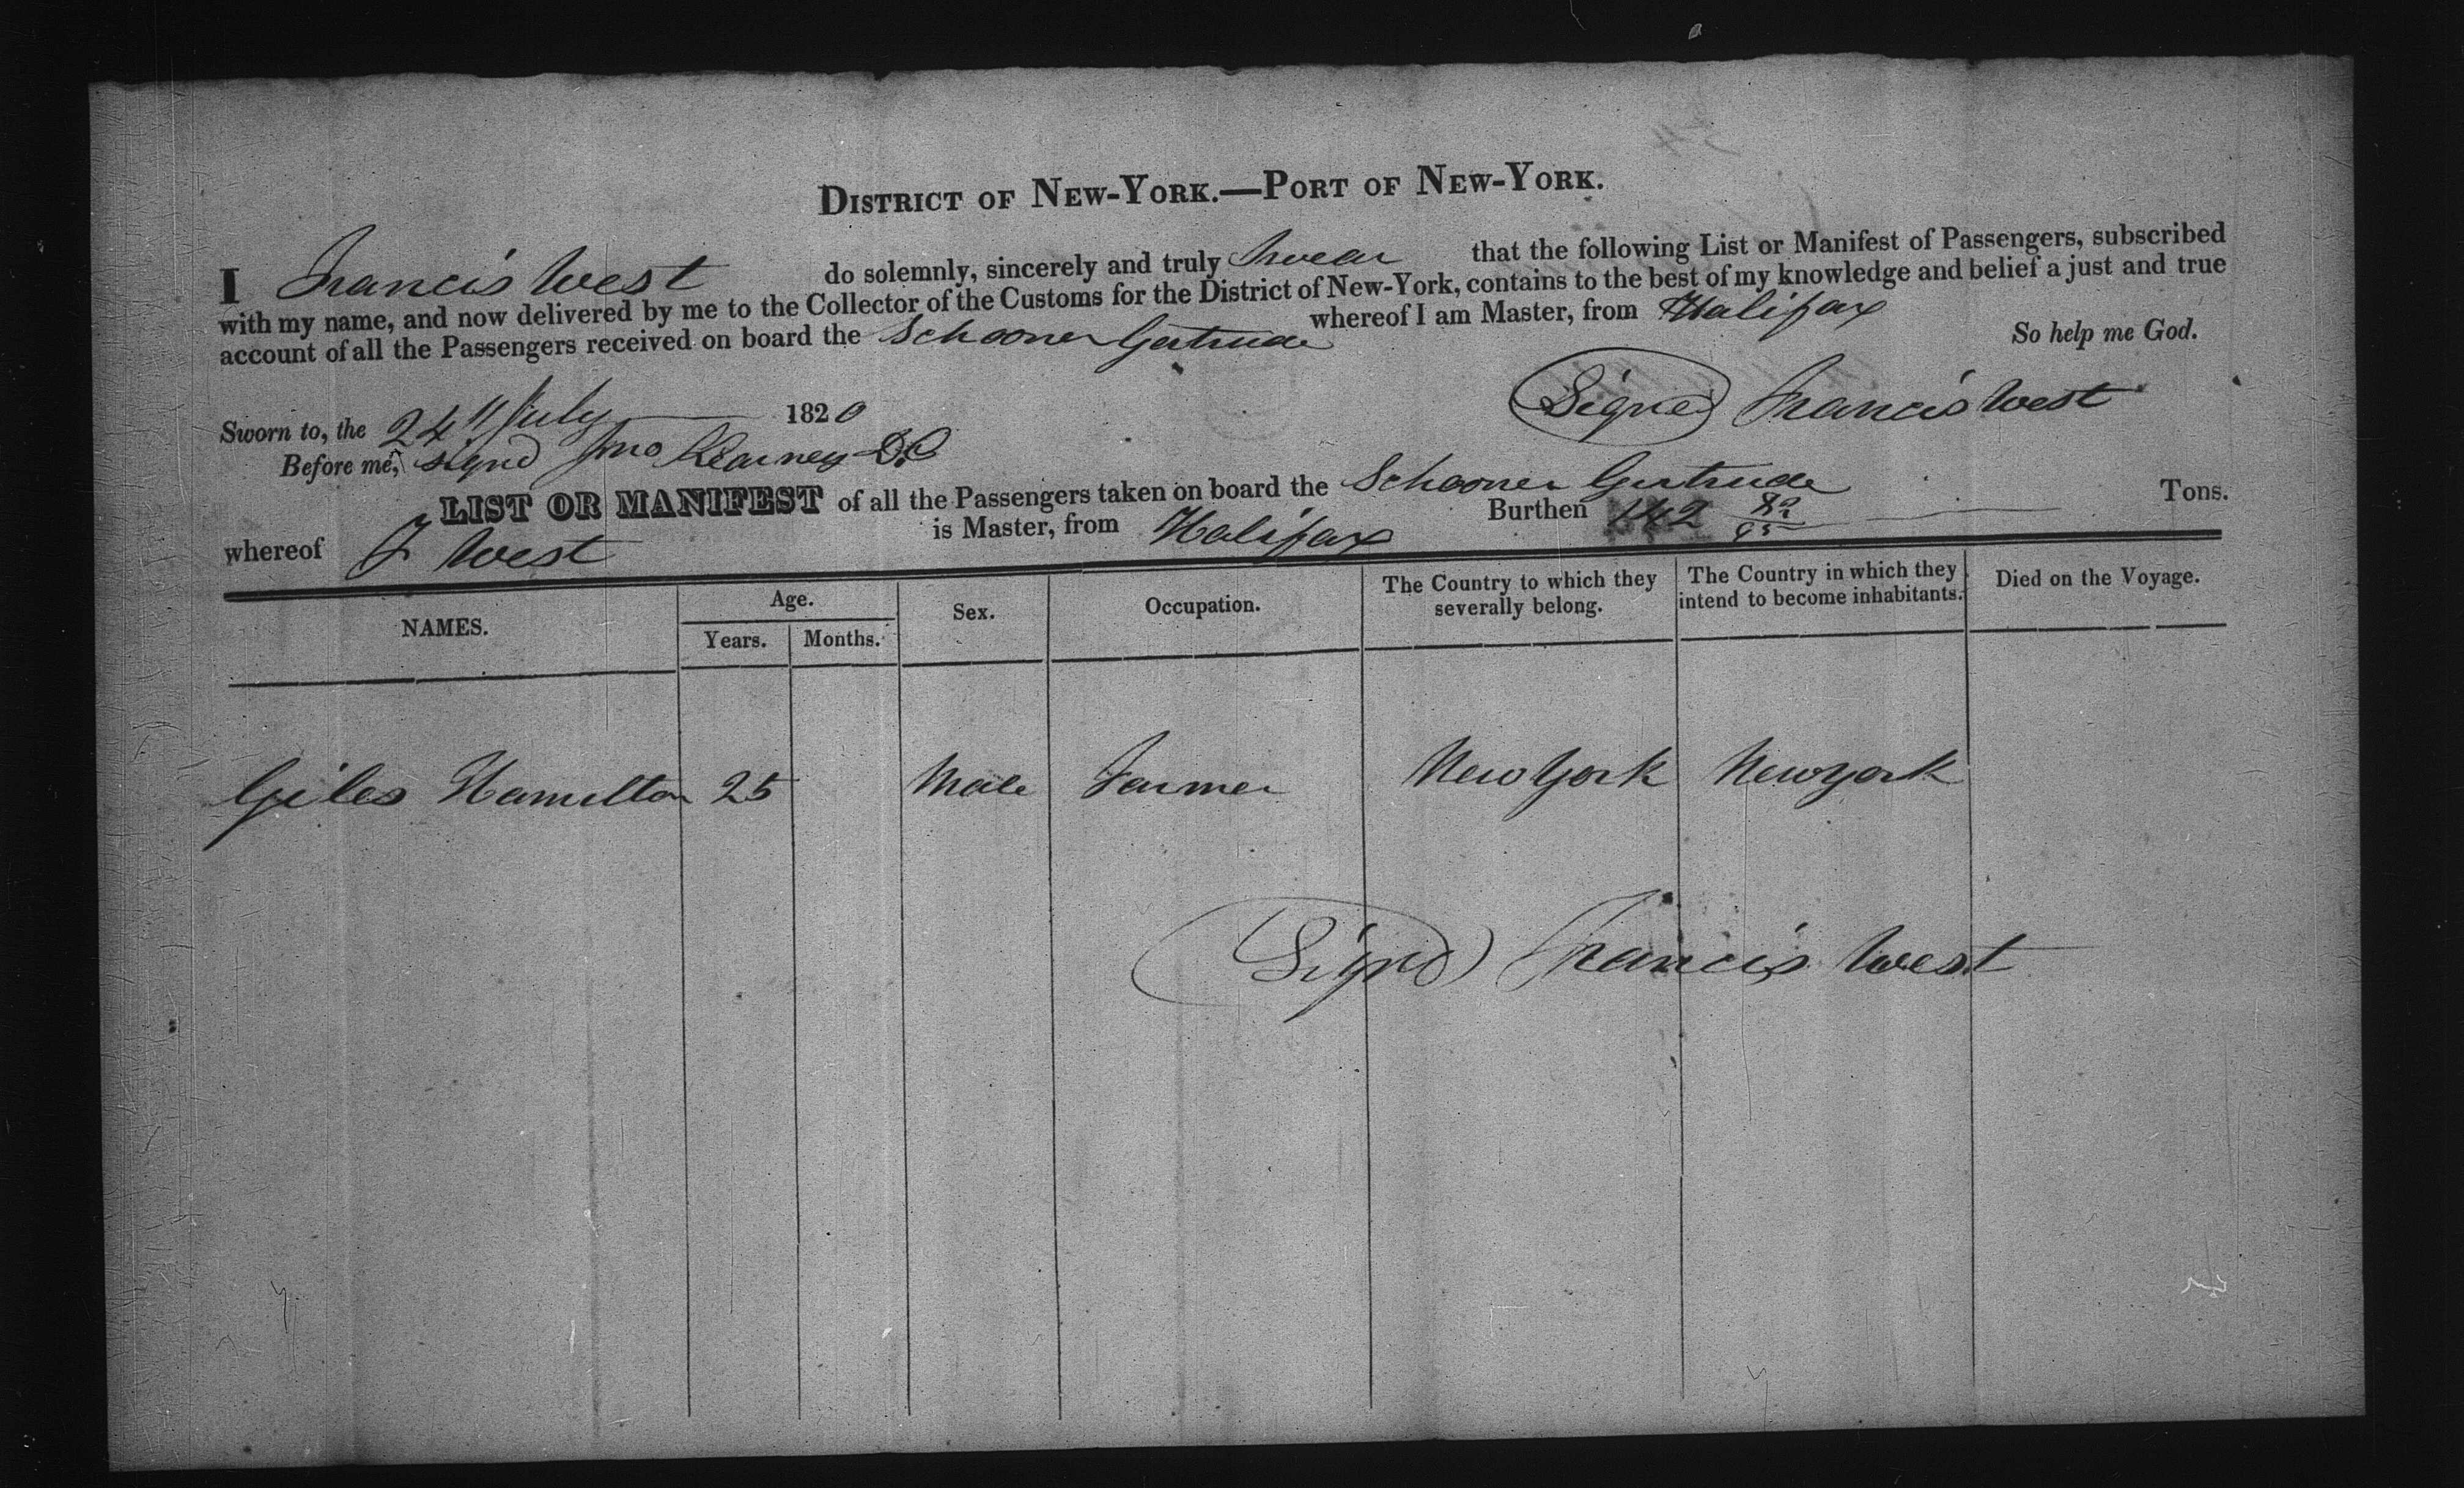 DISTRICT OF NEW-YORK.—PORT OF NEW-YORK.
I Francis West do solemnly, sincerely and truly Swear that the following List or Manifest of Passengers, subscribed
with my name, and now delivered by me to the Collector of the Customs for the District of New-York, contains to the best of my knowledge and belief a just and true
account of all the Passengers received on board the Schooner Gertrude whereof I am Master, from Halifax
So help me God.
Sworn to, the 24 July 1820 Signed Francis West
Before me, signd Jno Kearney D.C
LIST OR MANIFEST of all the Passengers taken on board the Schooner Gertrude
whereof F West is Master, from Halifax Burthen 142 Tons.
NAMES. Age. Years. Months. Sex. Occupation. The Country to which they severally belong. The Country in which they intend to become inhabitants. Died on the Voyage.
Giles Hamilton 25 Male Farmer New York New york
Signd Francis West